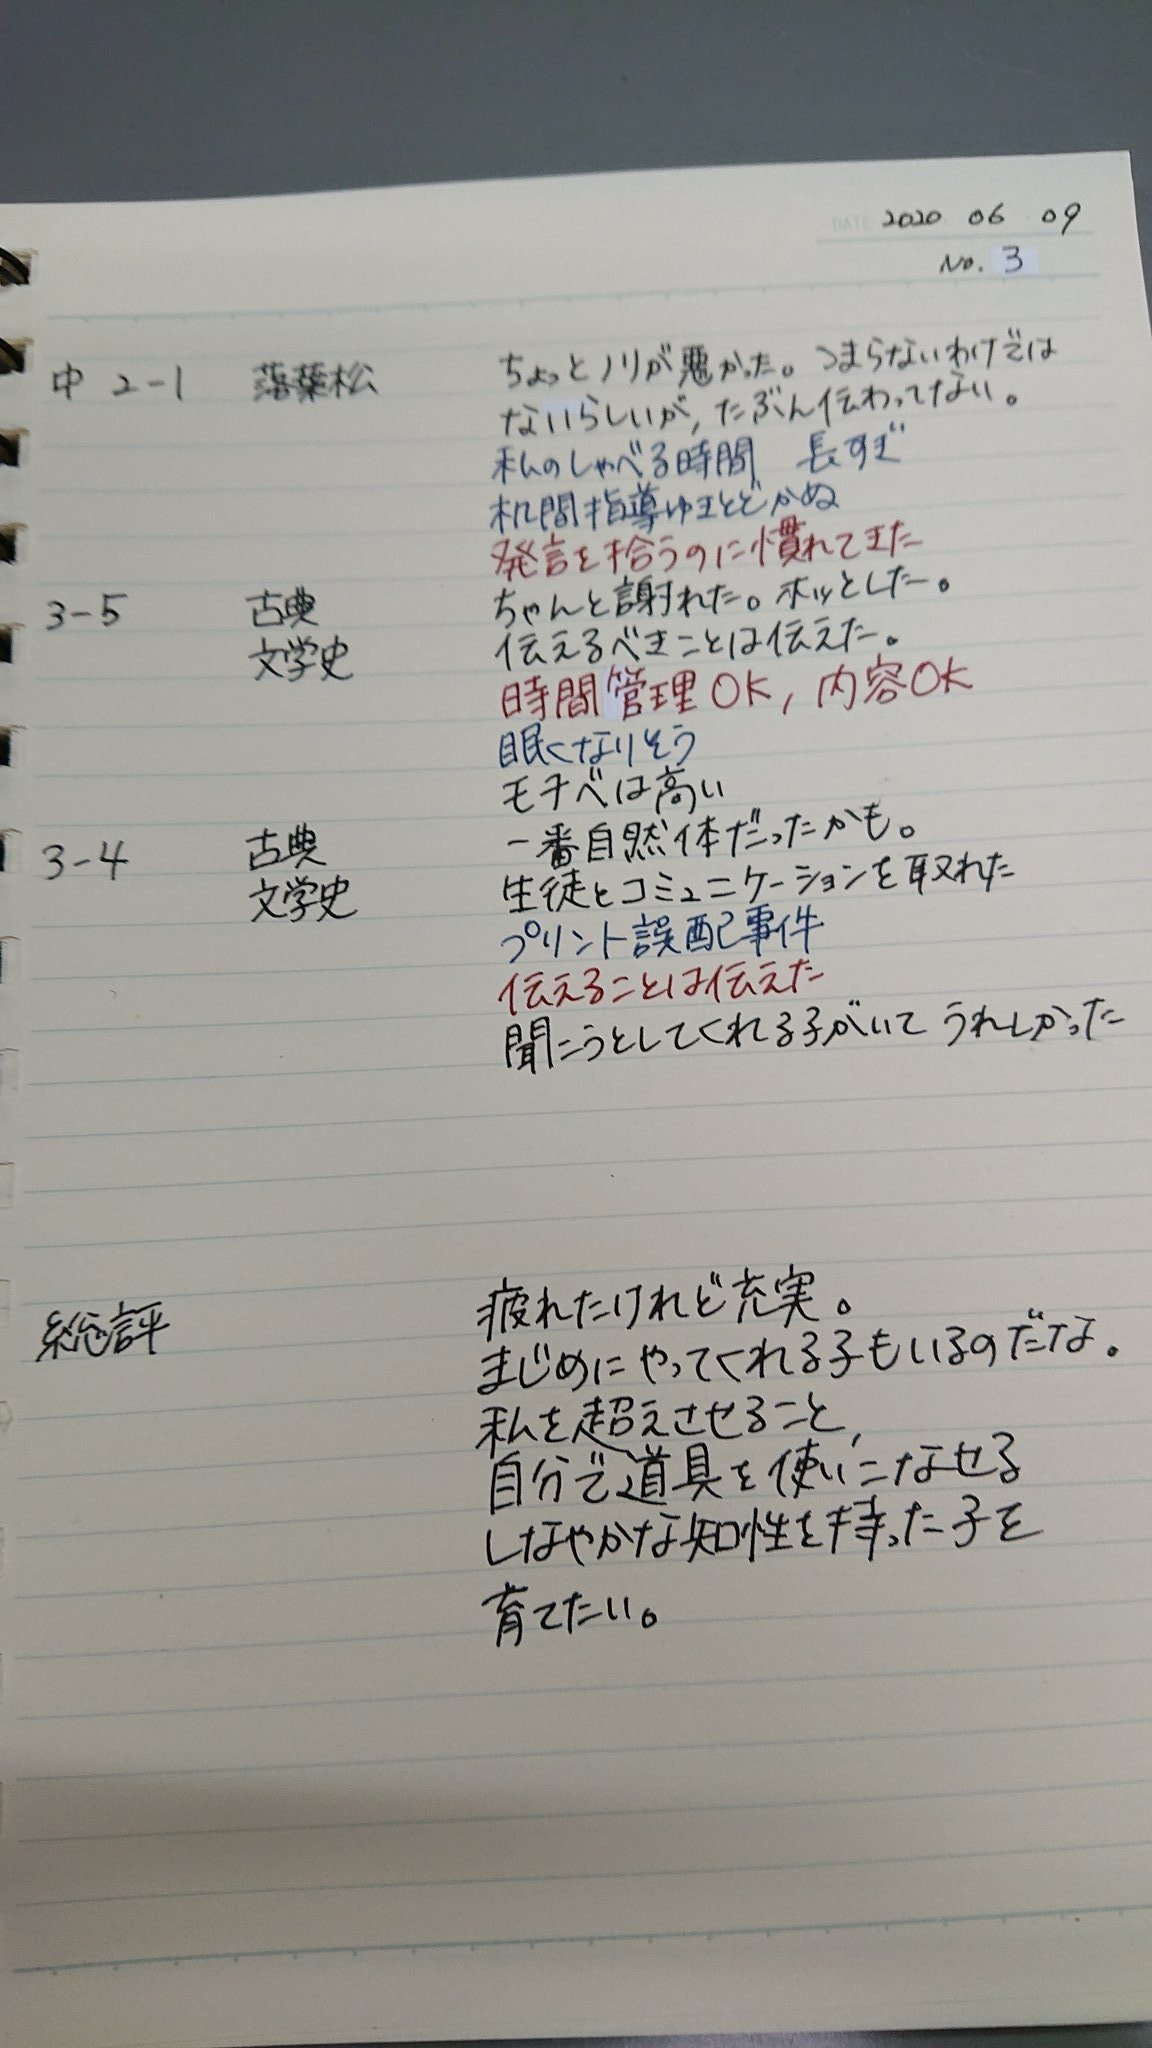 DATE 2020 06 09
No. 3
中 2-1 落葉松 ちょっとノリが悪かった。つまらないわけでは
ないらしいが, たぶん伝わってない。
私のしゃべる時間 長すぎ
机間指導ゆきとどかぬ
発言を拾うのに慣れてきた
3-5 古典 ちゃんと謝れた。ホッとした。
文学史 伝えるべきことは伝えた。
時間管理OK, 内容OK
眠くなりそう
モチベは高い
3-4 古典 一番自然体だったかも。
文学史 生徒とコミュニケーションを取れた
プリント誤配事件
伝えることは伝えた
聞こうとしてくれる子がいて うれしかった
総評 疲れたけれど充実。
まじめにやってくれる子もいるのだな。
私を超えさせること,
自分で道具を使いこなせる
しなやかな知性を持った子を
育てたい。